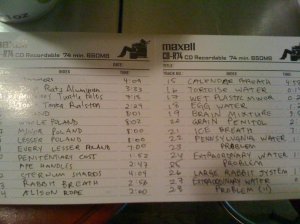 maxell
CD-R74 CD Recordable 74 min. 650MB
INDEX TIME
4:09
Rats 3:33
Turtle 9:15
Tonya Ralston 2:29
Poland 3:02
Minor Poland 8:00
Lesser Poland 2:00
Every Lesser Poland 7:00
Penitentiary Cost 1:52
Handles 2:43
Citernum Shards 4:09
Rabbit Breath 2:56
Alison Rope 2:00
maxell
CD-R74 CD Recordable 74 min. 650MB
TITLE INDEX TIME
15 Calendar Breath
16 Tortoise Water
17 Wet Plastic Minor
18 Egg Water
19 Brain Mixture
20 Grain Penitol
21 Ice Breath
22 Pennsylvania Water
23 Problem
24 Extraordinary Water
25 Problem
26 Large Rabbit System
27 Extraordinary Water
28 Problem